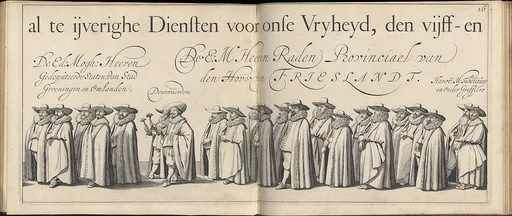 16
al te ijverighe Diensten voor onse Vryheyd, den vijff-en
De Ed. Mogh. Heeren
Gedeputeerde Staten van Stad
Groeningen en Omlanden.
Deurwaerdere
De E. M. Heeren Raden Provinciael van
den Hove van FRIESLANDT.
Hare E. M. Substituut
en onder Griffier